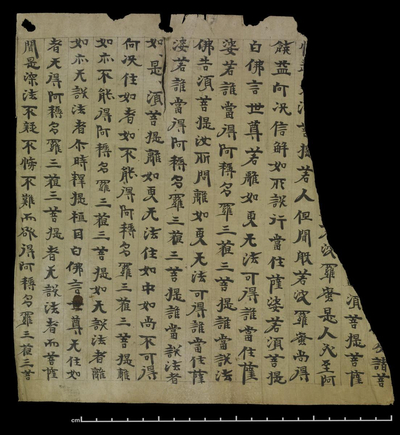 諸菩
須菩提菩薩
波羅蜜是人乃至阿
菩提若人但聞般若波羅蜜尚得
饒益何況信解如所說行當住薩婆若須菩提
白佛言世尊若離如更无法可得誰當住薩
婆若誰當得阿耨多羅三藐三菩提誰當說法
佛告須菩提汝所問離如更无法可得誰當住薩
婆若誰當得阿耨多羅三藐三菩提誰當說法者
如是須菩提離如更无法住如中如尚不可得
何況住如者如不能得阿耨多羅三藐三菩提離
如亦不能得阿耨多羅三藐三菩提如无說法者離
如亦无說法者尒時釋提桓因白佛言世尊无住如
者无得阿耨多羅三藐三菩提者无說法者而菩薩
聞是深法不疑不悔不難而欲得阿耨多羅三藐三菩
cm